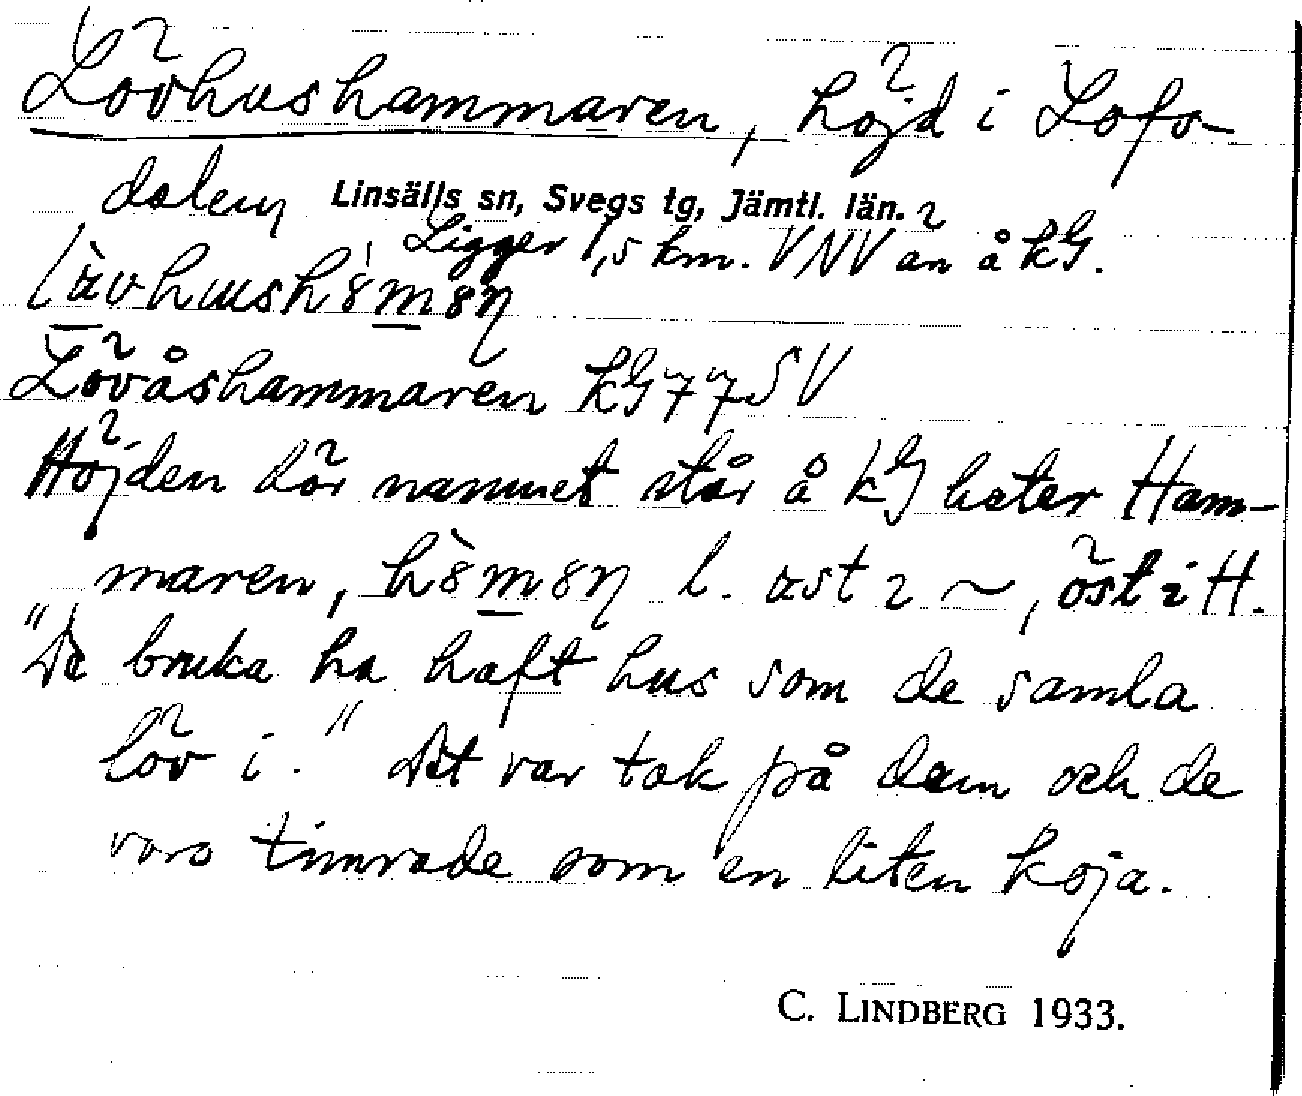 Lövhushammaren, höjd i Lofs-
dalen Linsälls sn, Svegs tg, Jämtl. län.
Ligger 1,5 km. VNV än å kG.
Lövåshammaren kG 77 SV
Höjden där namnet står å kG heter Ham-
maren, l. öst i H.
"De bruka ha haft hus som de samla
löv i." Det var tak på dem och de
voro timrade som en liten koja.
C. LINDBERG 1933.